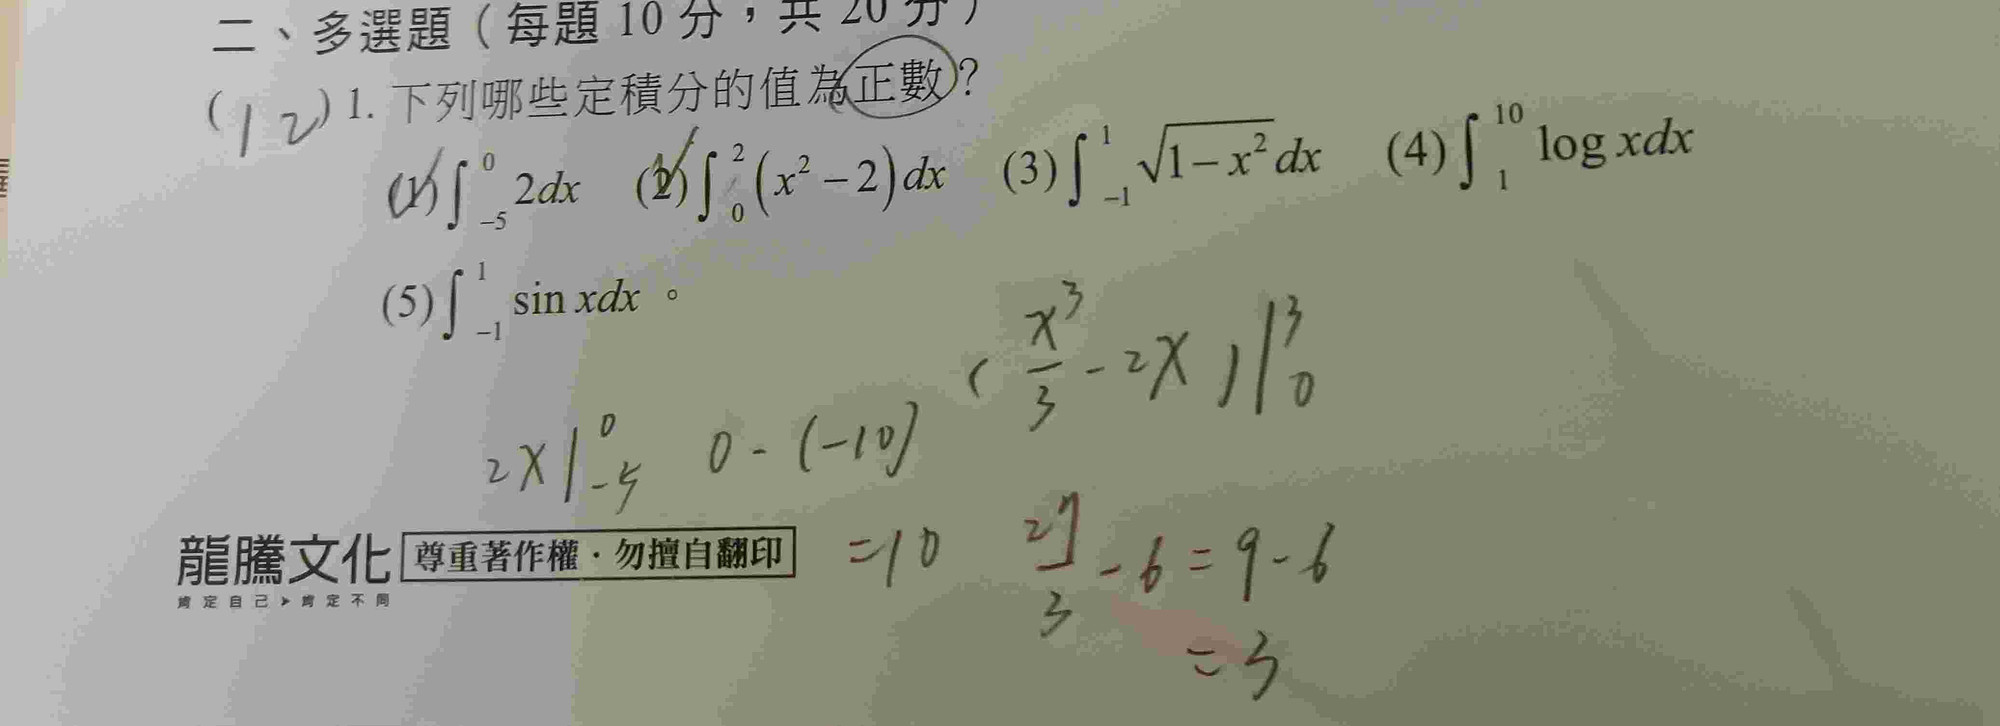 二、多選題（每題 10 分，共 20 分）
(12) 1. 下列哪些定積分的值為正數？
(1) ∫_{-5}^{0} 2dx (2) ∫_{0}^{2} (x² − 2) dx (3) ∫_{-1}^{1} √(1 − x²) dx (4) ∫_{1}^{10} log xdx
(5) ∫_{-1}^{1} sin xdx 。
( x³/3 - 2x ) |_{0}^{3}
2x |_{-5}^{0} 0 - (-10)
= 10
27/3 - 6 = 9 - 6
= 3
龍騰文化 尊重著作權・勿擅自翻印
肯定自己➤肯定不同